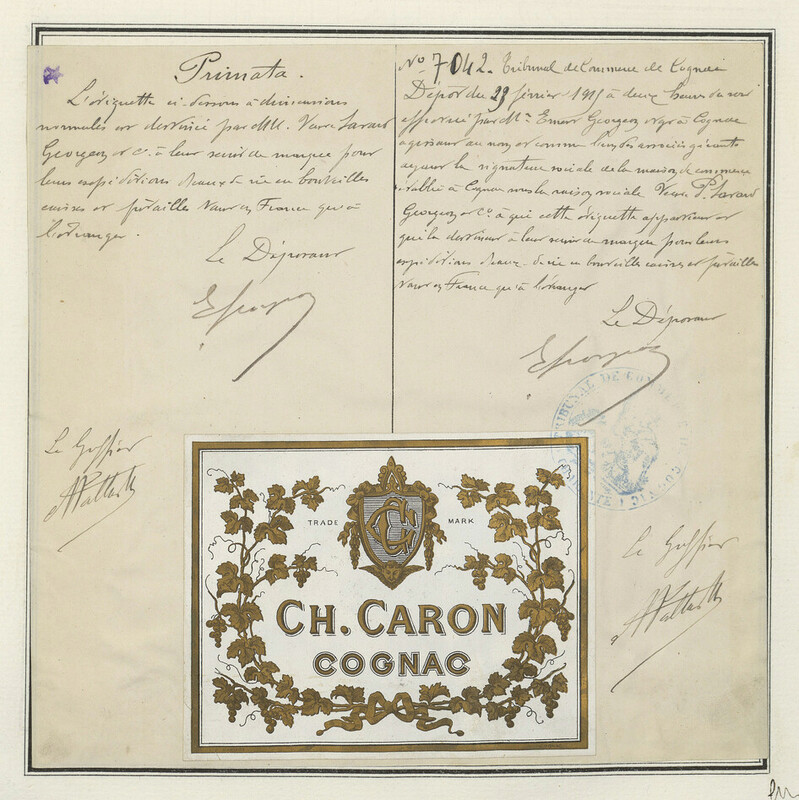 Primata.
L'étiquette ci-dessous à dimensions
normales est destinée par MM. Veuve Savard
Georgeon et Cie à leur servir de marque pour
leurs expéditions d'eaux de vie en bouteilles
caisses et futailles tant en France qu'à
l'étranger.
Le Déposant
Le Greffier
No 7042. Tribunal de Commerce de Cognac
Dépôt du février à deux heures du soir
effectué par Mr Georgeon Ngt à Cognac
agissant au nom et comme l'un des associés gérants
ayant la signature sociale de la maison de commerce
établie à Cognac sous la raison sociale Veuve P. Savard
Georgeon et Co à qui cette étiquette appartient et
qui la destinent à leur servir de marque pour leurs
expéditions d'eaux-de-vie en bouteilles caisses et futailles
tant en France qu'à l'étranger
Le Déposant
TRIBUNAL DE COMMERCE
Le Greffier
TRADE MARK
CC
CH. CARON
COGNAC